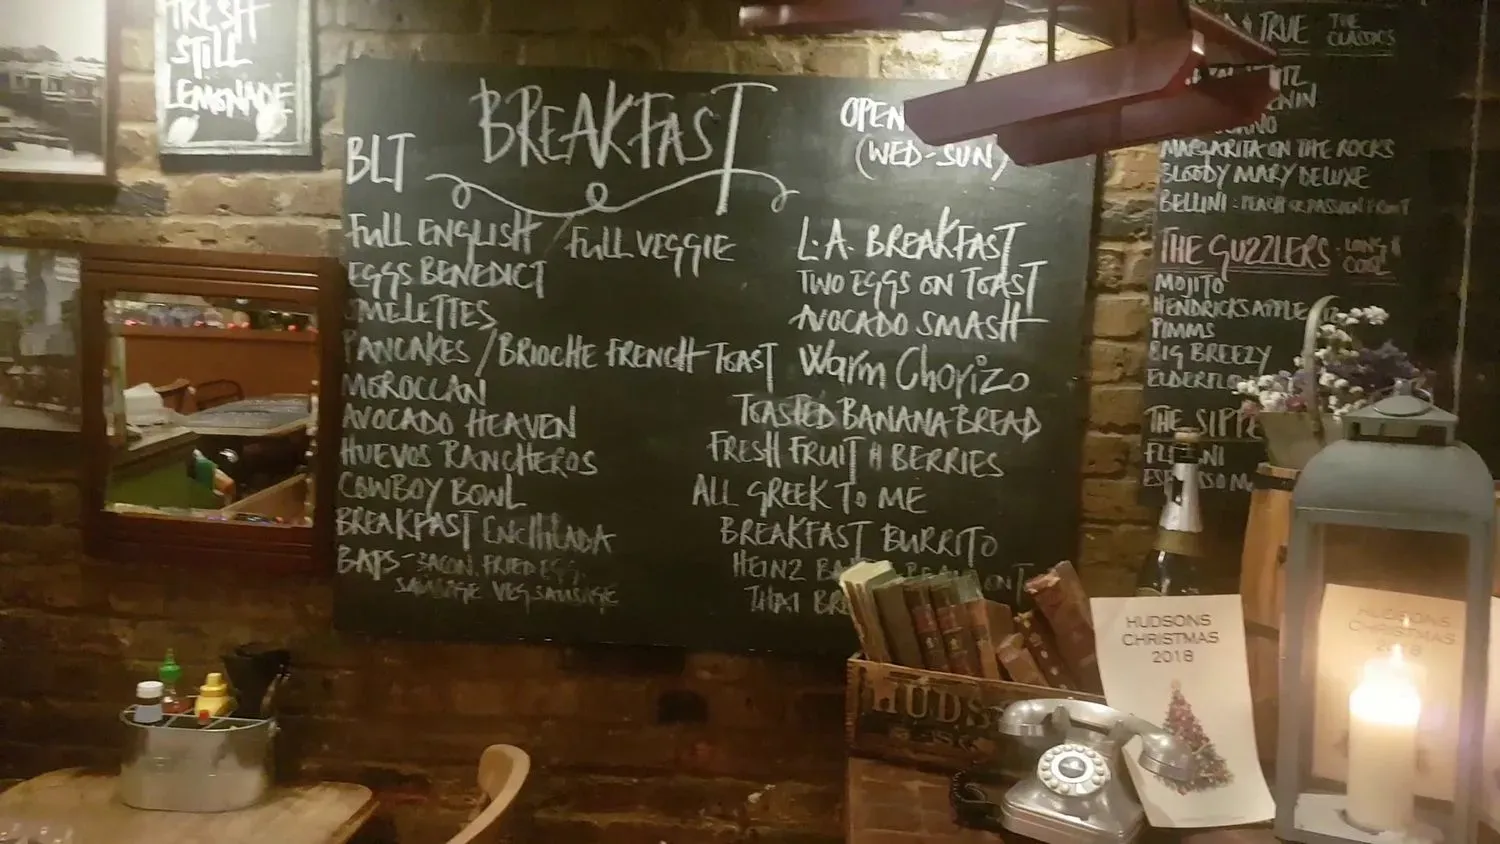 FRESH
STILL
LEMONADE
BREAKFAST
OPEN
(WED-SUN)
BLT
FULL ENGLISH FULL VEGGIE
EGGS BENEDICT
OMELETTES
PANCAKES / BRIOCHE FRENCH TOAST
MOROCCAN
AVOCADO HEAVEN
HUEVOS RANCHEROS
COWBOY BOWL
BREAKFAST ENCHILADA
BAPS - BACON, FRIED EGG,
SAUSAGE VEG SAUSAGE
L.A. BREAKFAST
TWO EGGS ON TOAST
AVOCADO SMASH
Warm Chorizo
TOASTED BANANA BREAD
FRESH FRUIT & BERRIES
ALL GREEK TO ME
BREAKFAST BURRITO
HEINZ
THAT
TRUE THE CLASSICS
MARGARITA ON THE ROCKS
BLOODY MARY DELUXE
BELLINI: PEACH OR PASSION FRUIT
THE GUZZLERS - LONG & COOL
MOJITO
HENDRICKS APPLE
PIMMS
BIG BREEZY
THE
HUDSONS
CHRISTMAS
2018
HUDSONS
CHRISTMAS
2018